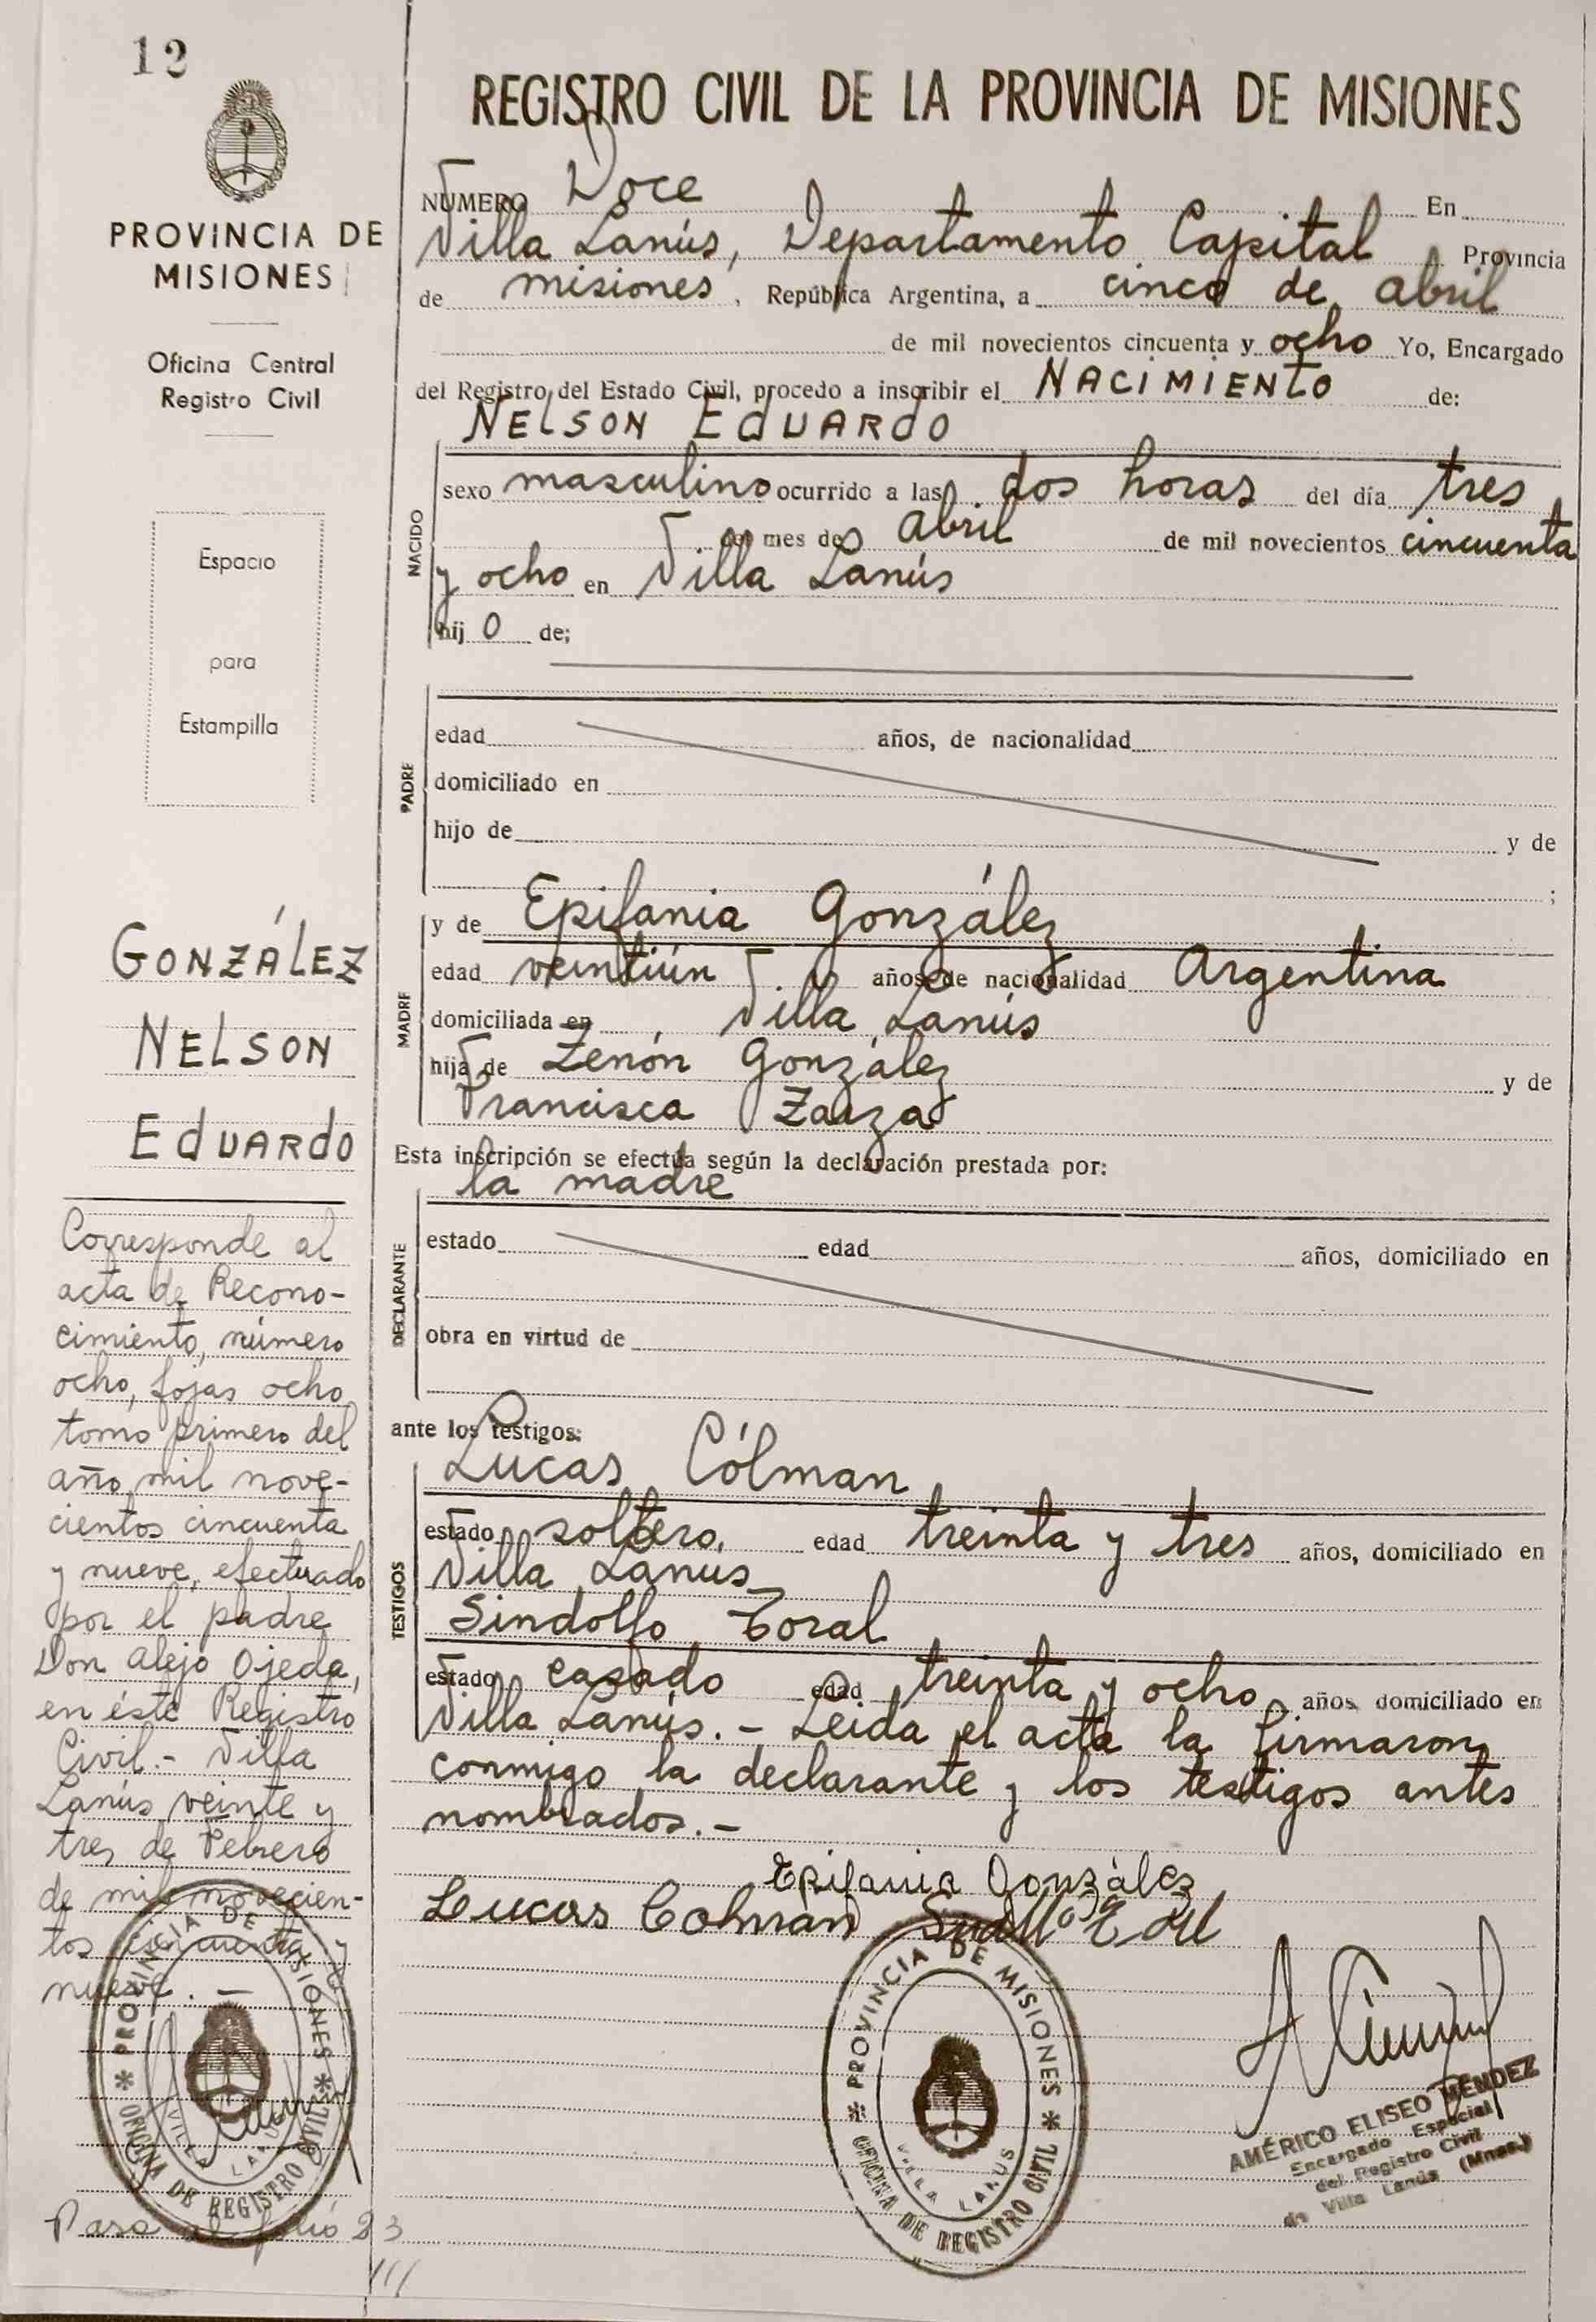 12
PROVINCIA DE
MISIONES
Oficina Central
Registro Civil
Espacio
para
Estampilla
GONZÁLEZ
NELSON
EdUARdO
Corresponde al
acta de Recono-
cimiento, número
ocho, fojas ocho,
tomo primero del
año mil nove-
cientos cincuenta
y nueve, efectuado
por el padre
Don Alejo Ojeda,
en éste Registro
Civil.- Villa
Lanús veinte y
tres de Febrero
de mil novecien-
tos cincuenta y
nueve. -
PROVINCIA DE MISIONES
OFICINA DE REGISTRO CIVIL
VILLA LANUS
Pasa al folio 23
///
REGISTRO CIVIL DE LA PROVINCIA DE MISIONES
NUMERO Doce En
Villa Lanús, Departamento Capital Provincia
de misiones, República Argentina, a cinco de abril
de mil novecientos cincuenta y ocho Yo, Encargado
del Registro del Estado Civil, procedo a inscribir el NACIMIENTO de:
NELSON EdUARdO
NACIDO
sexo masculino ocurrido a las dos horas del día tres
del mes de abril de mil novecientos cincuenta
y ocho en Villa Lanús
hij o de;
PADRE
edad años, de nacionalidad
domiciliado en
hijo de y de
;
MADRE
y de Epifania González
edad veintiún años de nacionalidad Argentina
domiciliada en Villa Lanús
hija de Zenón González y de
Francisca Zarza
Esta inscripción se efectúa según la declaración prestada por:
la madre
DECLARANTE
estado edad años, domiciliado en
obra en virtud de
ante los testigos:
TESTIGOS
Lucas Cólman
estado soltero, edad treinta y tres años, domiciliado en
Villa Lanus
Sindolfo Toral
estado casado edad treinta y ocho años domiciliado en
Villa Lanús. - Leida el acta la firmaron
conmigo la declarante y los testigos antes
nombrados. -
Epifania González
Lucas Colman
PROVINCIA DE MISIONES
OFICINA DE REGISTRO CIVIL
VILLA LANUS
AMÉRICO ELISEO MÉNDEZ
Encargado Especial
del Registro Civil
de Villa Lanús (Mnes.)